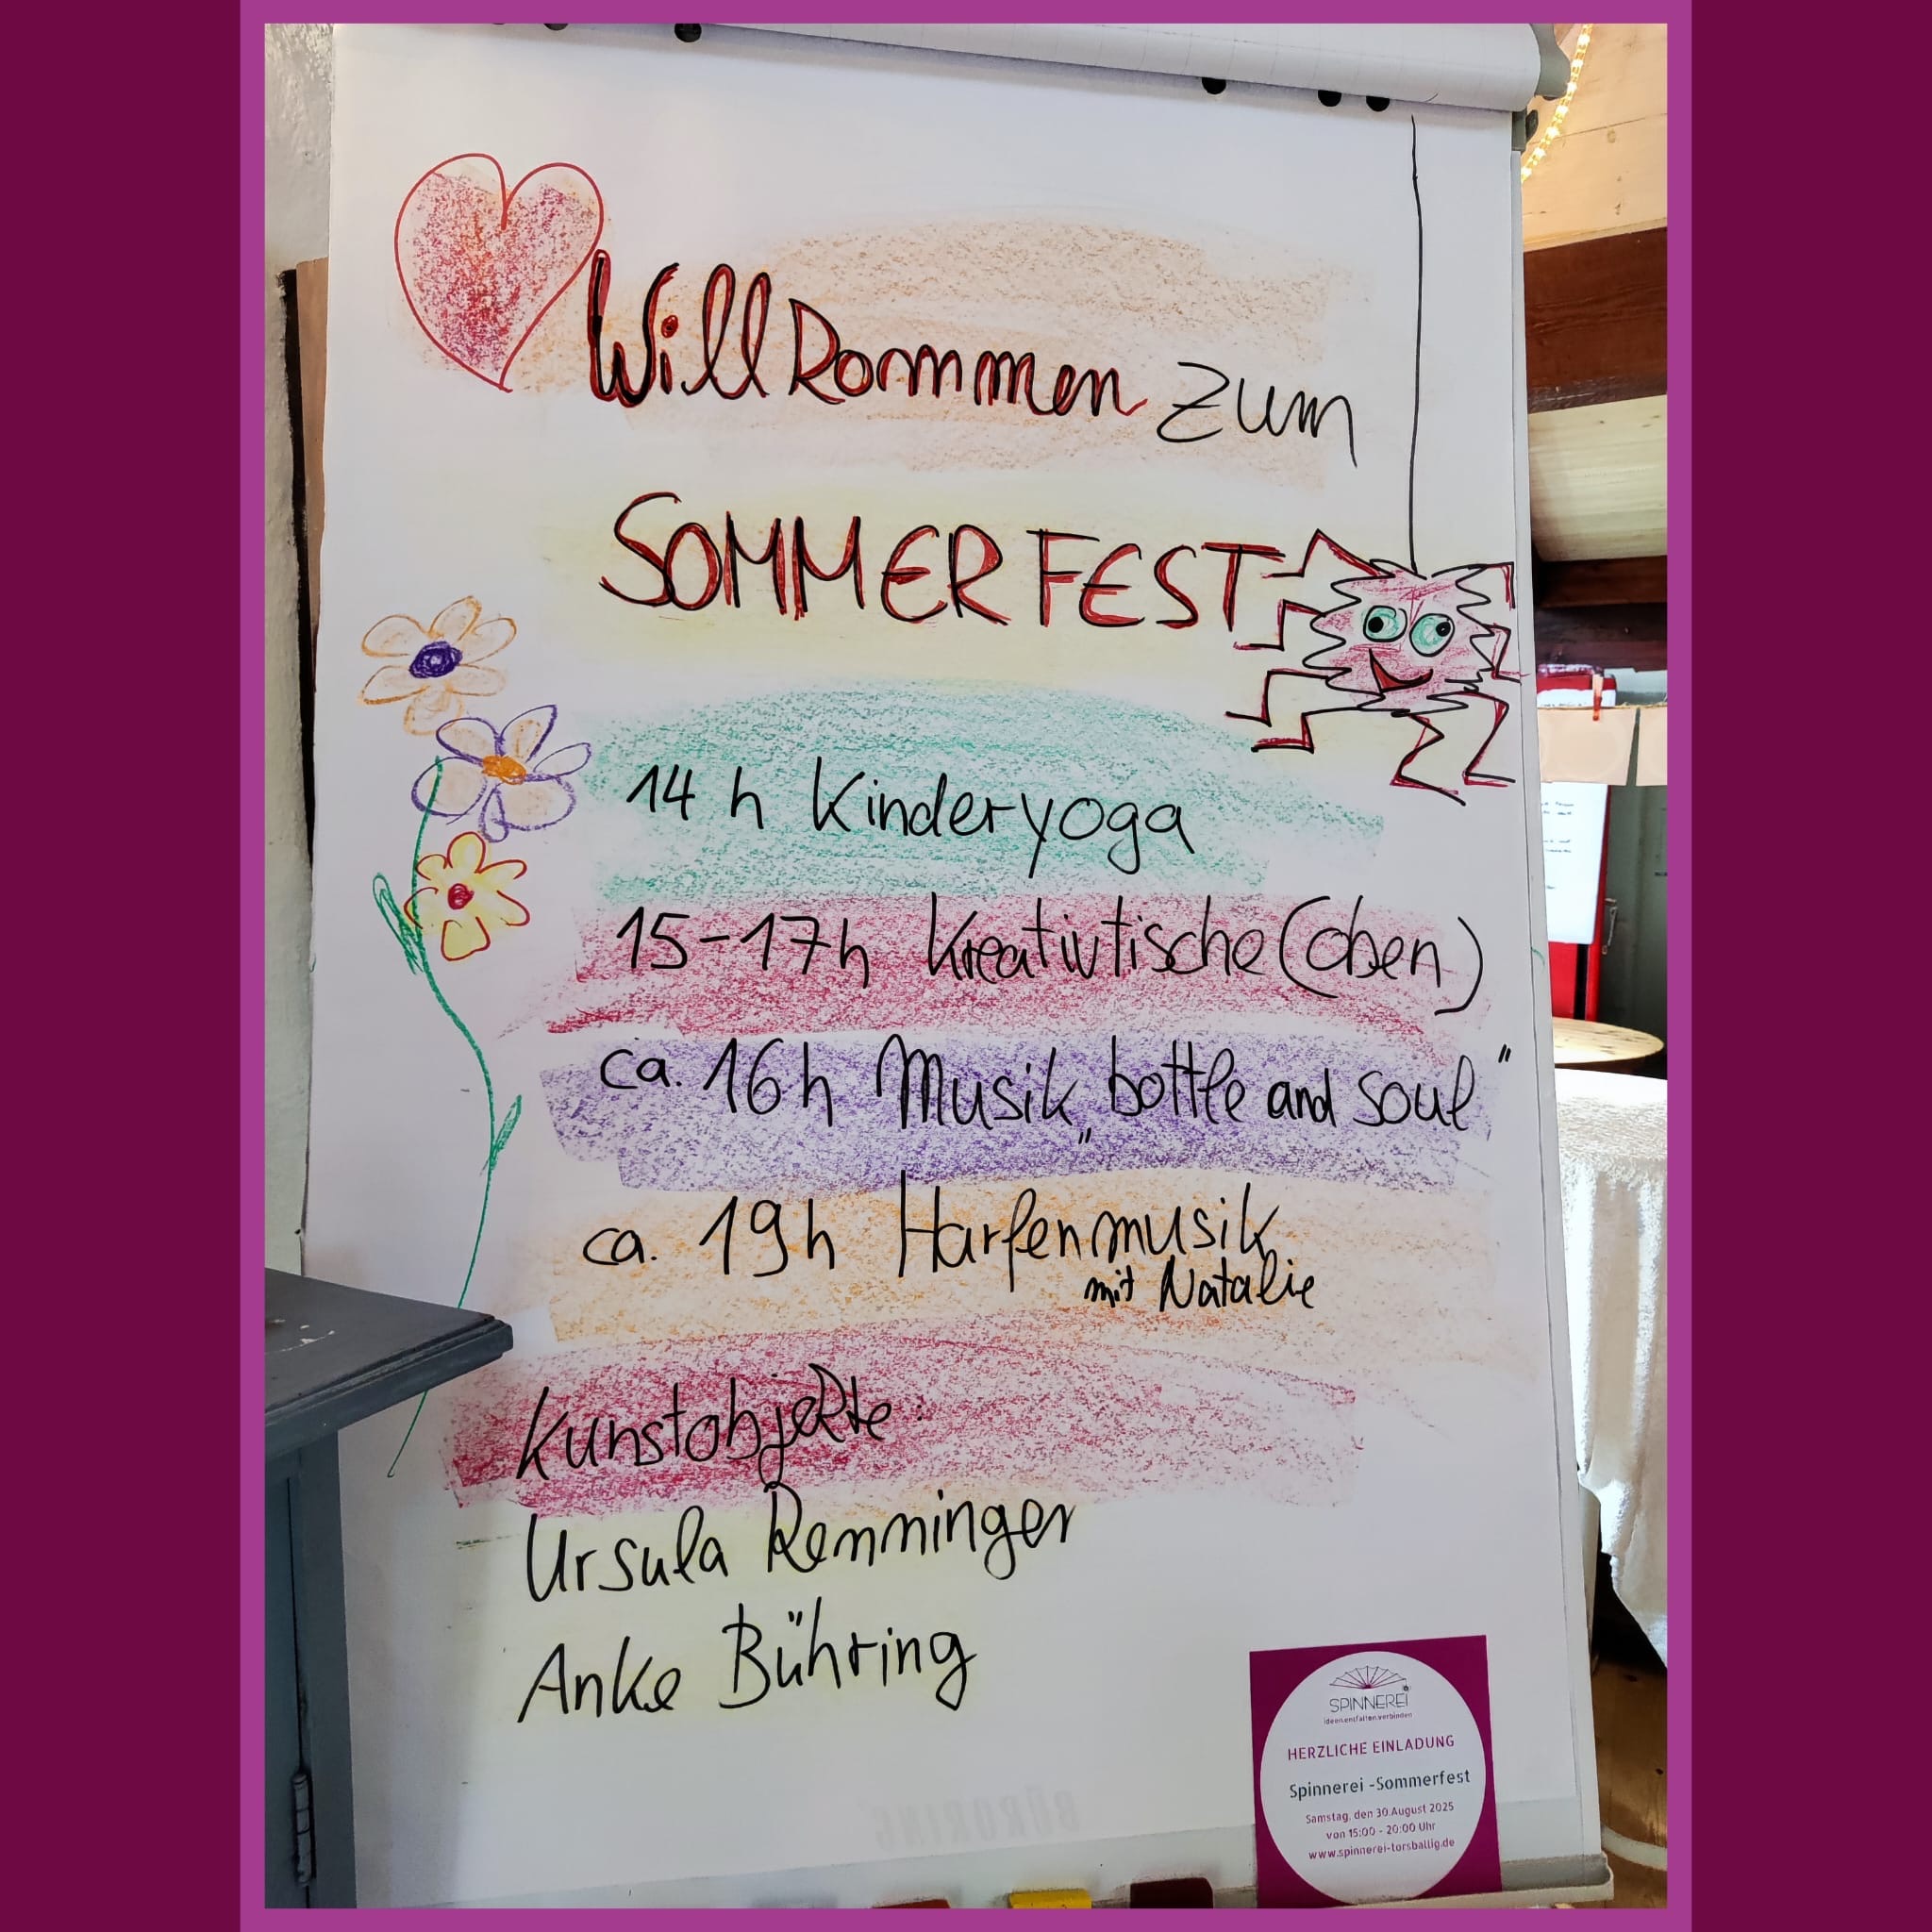 Willkommen zum
SOMMERFEST
14 h Kinderyoga
15-17h Kreativtische (oben)
ca. 16h Musik „bottle and soul"
ca. 19h Harfenmusik
mit Natalie
Kunstobjekte:
Ursula Renninger
Anke Bühring
BÜRORING
SPINNEREI
ideen.entfalten.verbinden
HERZLICHE EINLADUNG
Spinnerei -Sommerfest
Samstag, den 30.August 2025
von 15:00 - 20:00 Uhr
www.spinnerei-torsballig.de